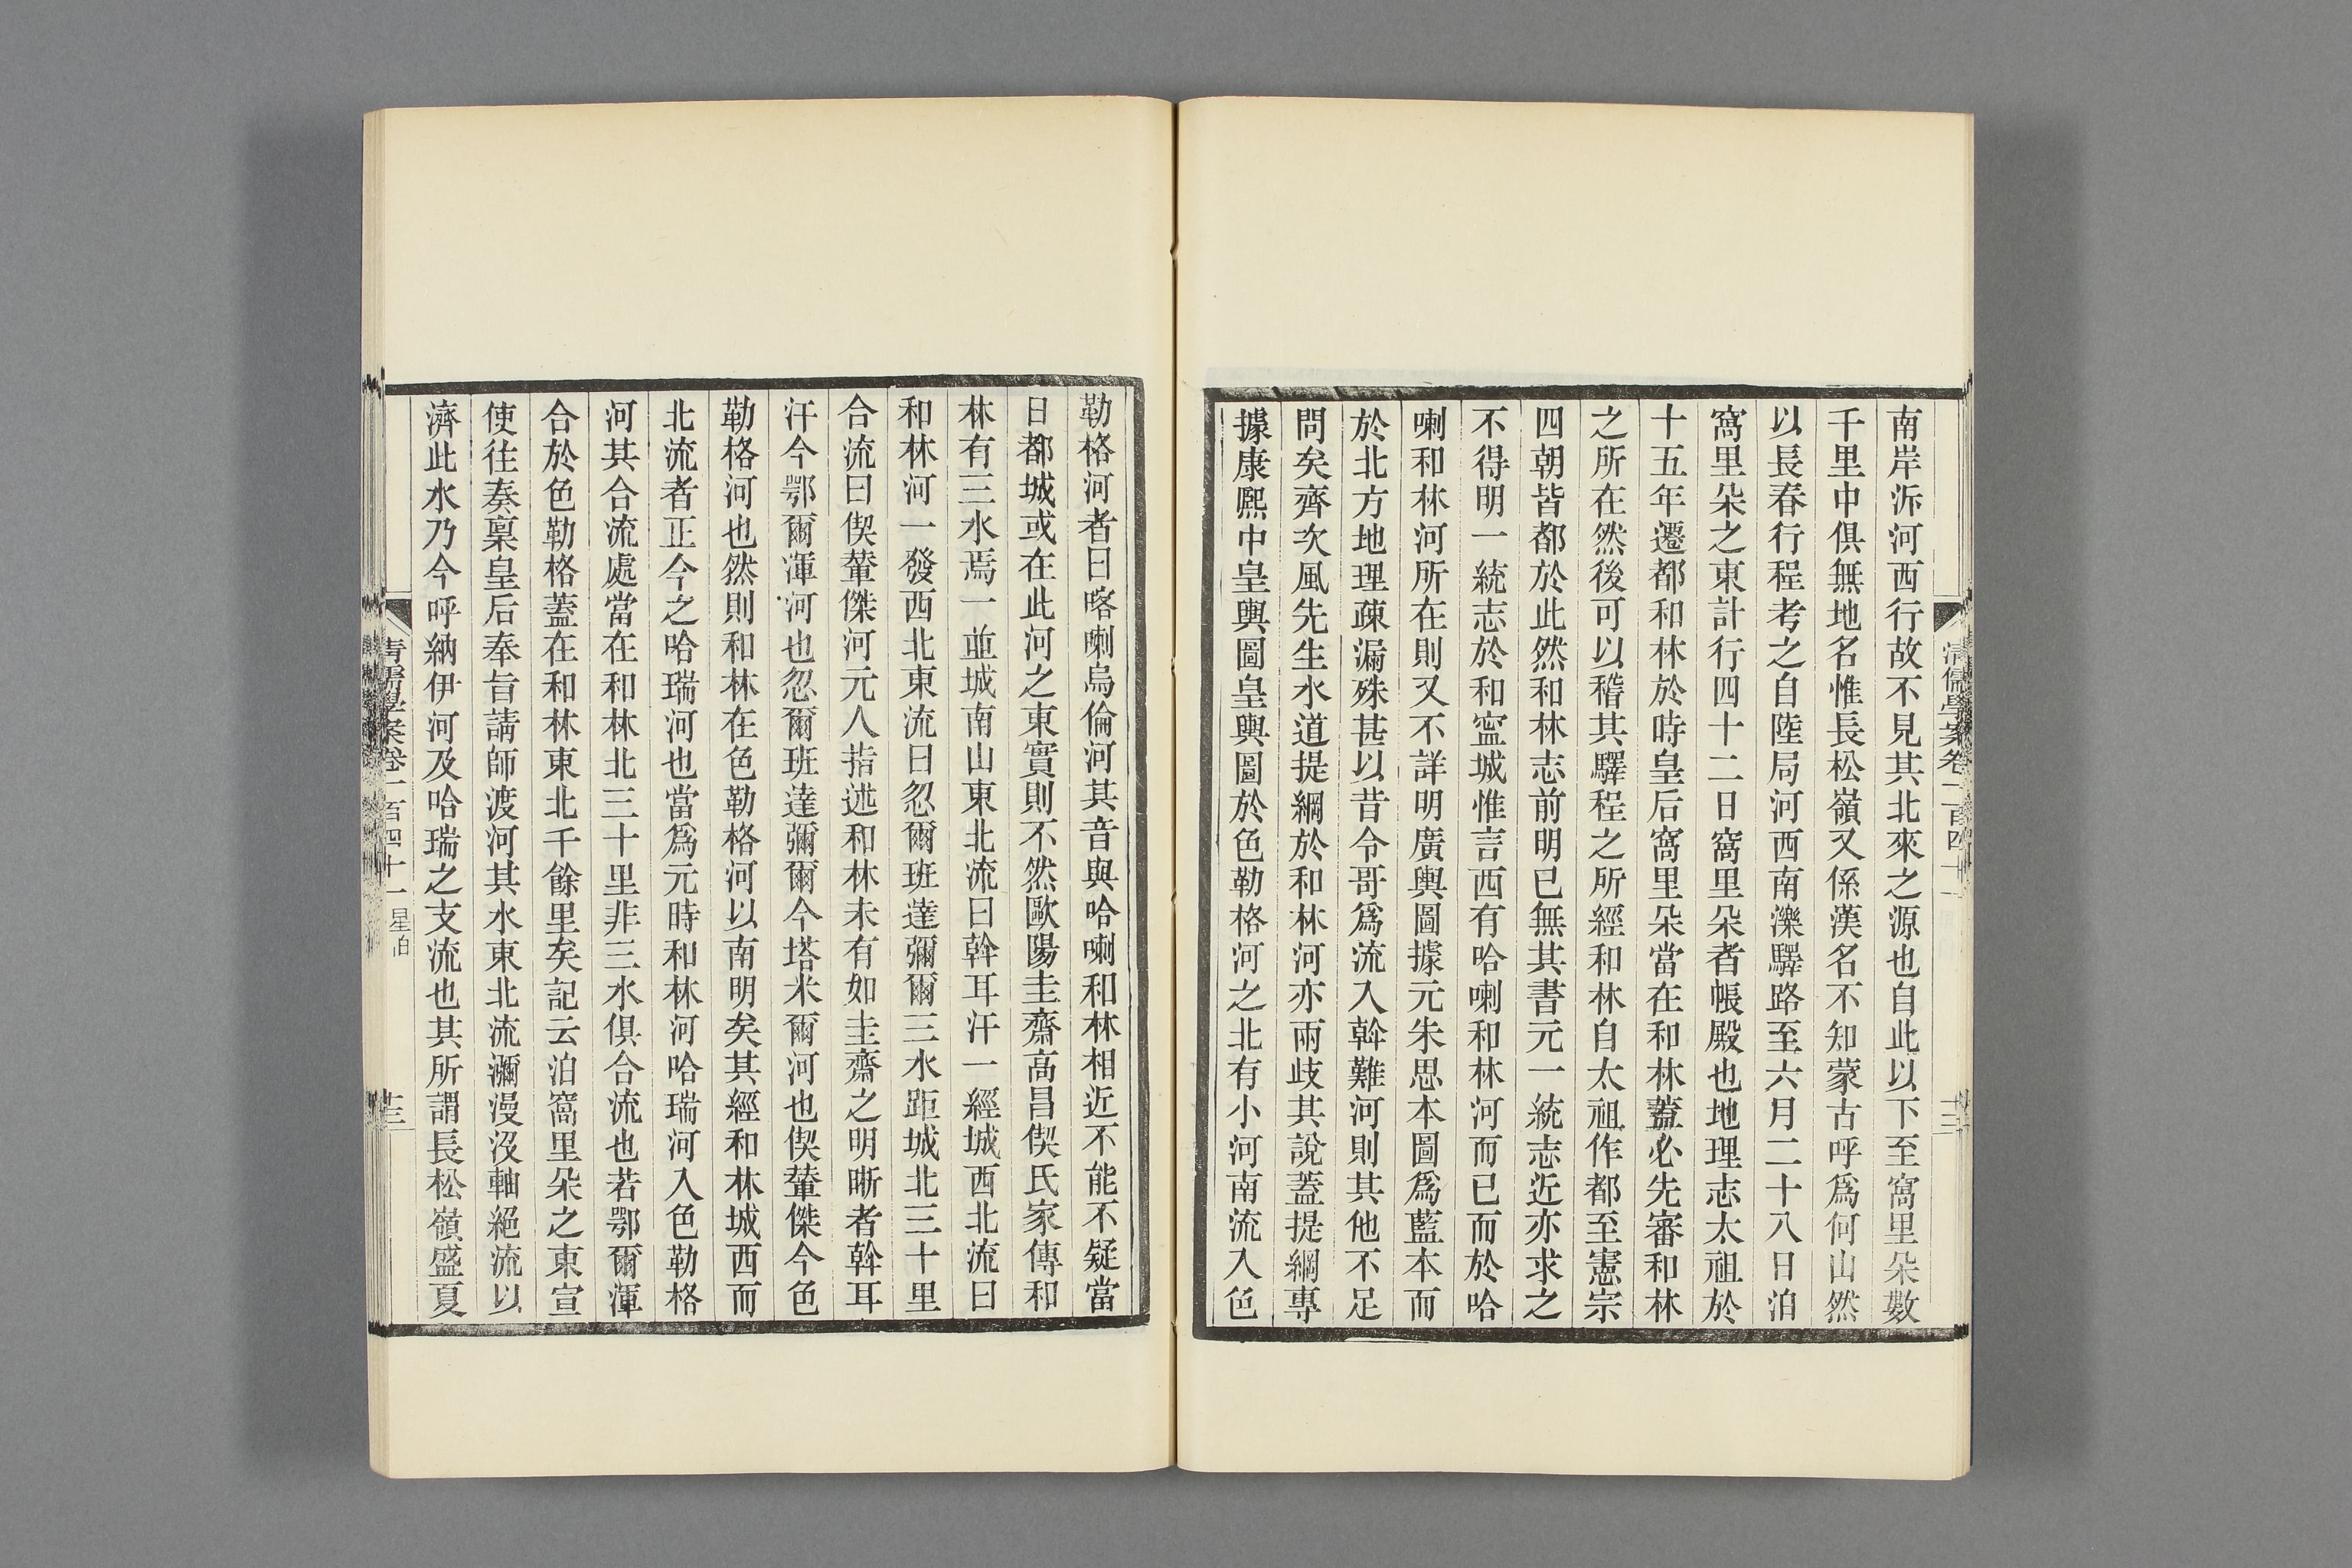 南岸泝河西行故不見其北來之源也自此以下至窩里朵數
千里中俱無地名惟長松嶺又係漢名不知蒙古呼爲何山然
以長春行程考之自陸局河西南濼驛路至六月二十八日泊
窩里朵之東計行四十二日窩里朵者帳殿也地理志太祖於
十五年遷都和林於時皇后窩里朵當在和林蓋必先審和林
之所在然後可以稽其驛程之所經和林自太祖作都至憲宗
四朝皆都於此然和林志前明已無其書元一統志近亦求之
不得明一統志於和寍城惟言西有哈喇和林河而已而於哈
喇和林河所在則又不詳明廣輿圖據元朱思本圖爲藍本而
於北方地理疎漏殊甚以昔令哥爲流入斡難河則其他不足
問矣齊次風先生水道提綱於和林河亦兩歧其說蓋提綱專
據康熙中皇輿圖皇輿圖於色勒格河之北有小河南流入色
勒格河者曰喀喇烏倫河其音與哈喇和林相近不能不疑當
日都城或在此河之東實則不然歐陽圭齋高昌偰氏家傳和
林有三水焉一並城南山東北流曰斡耳汗一經城西北流曰
和林河一發西北東流曰忽爾班達彌爾三水距城北三十里
合流曰偰輦傑河元人指述和林未有如圭齋之明晰者斡耳
汗今鄂爾渾河也忽爾班達彌爾今塔米爾河也偰輦傑今色
勒格河也然則和林在色勒格河以南明矣其經和林城西而
北流者正今之哈瑞河也當爲元時和林河哈瑞河入色勒格
河其合流處當在和林北三十里非三水俱合流也若鄂爾渾
合於色勒格蓋在和林東北千餘里矣記云泊窩里朵之東宣
使往奏稟皇后奉旨請師渡河其水東北流瀰漫沒軸絕流以
濟此水乃今呼納伊河及哈瑞之支流也其所謂長松嶺盛夏
清儒學案卷一百四十一 星伯